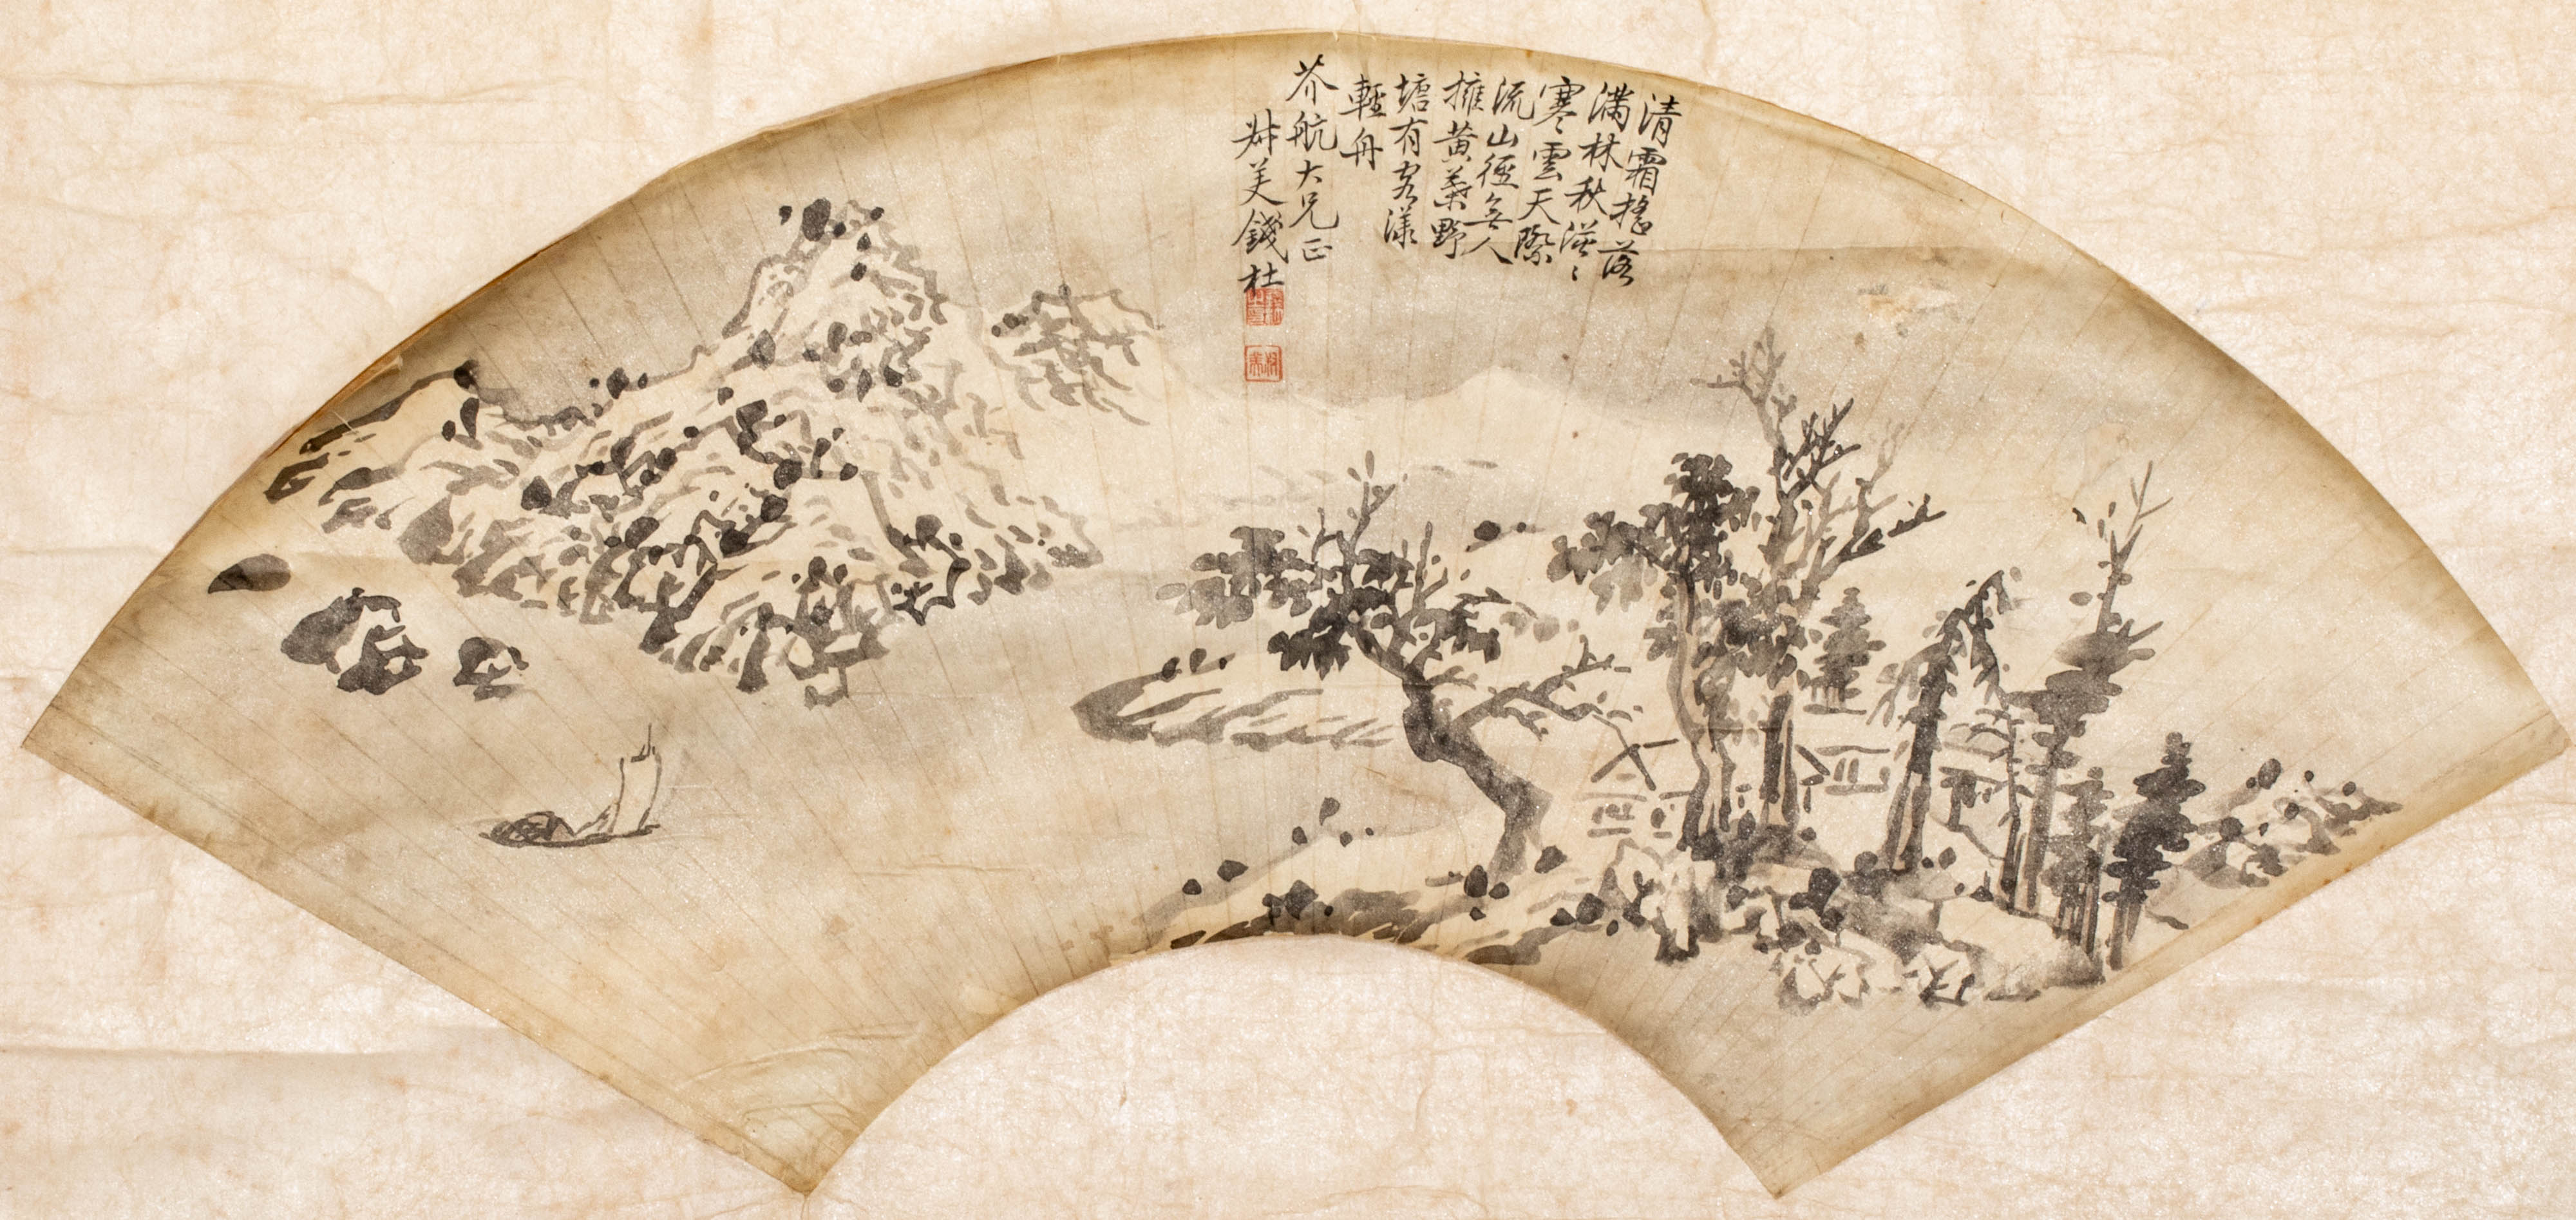 清霜搖落
滿林秋漠〻
寒雲天際
流山徑無人
擁黃葉野
塘有客漾
輕舟
芥航大兄正
叔美錢杜
叔美